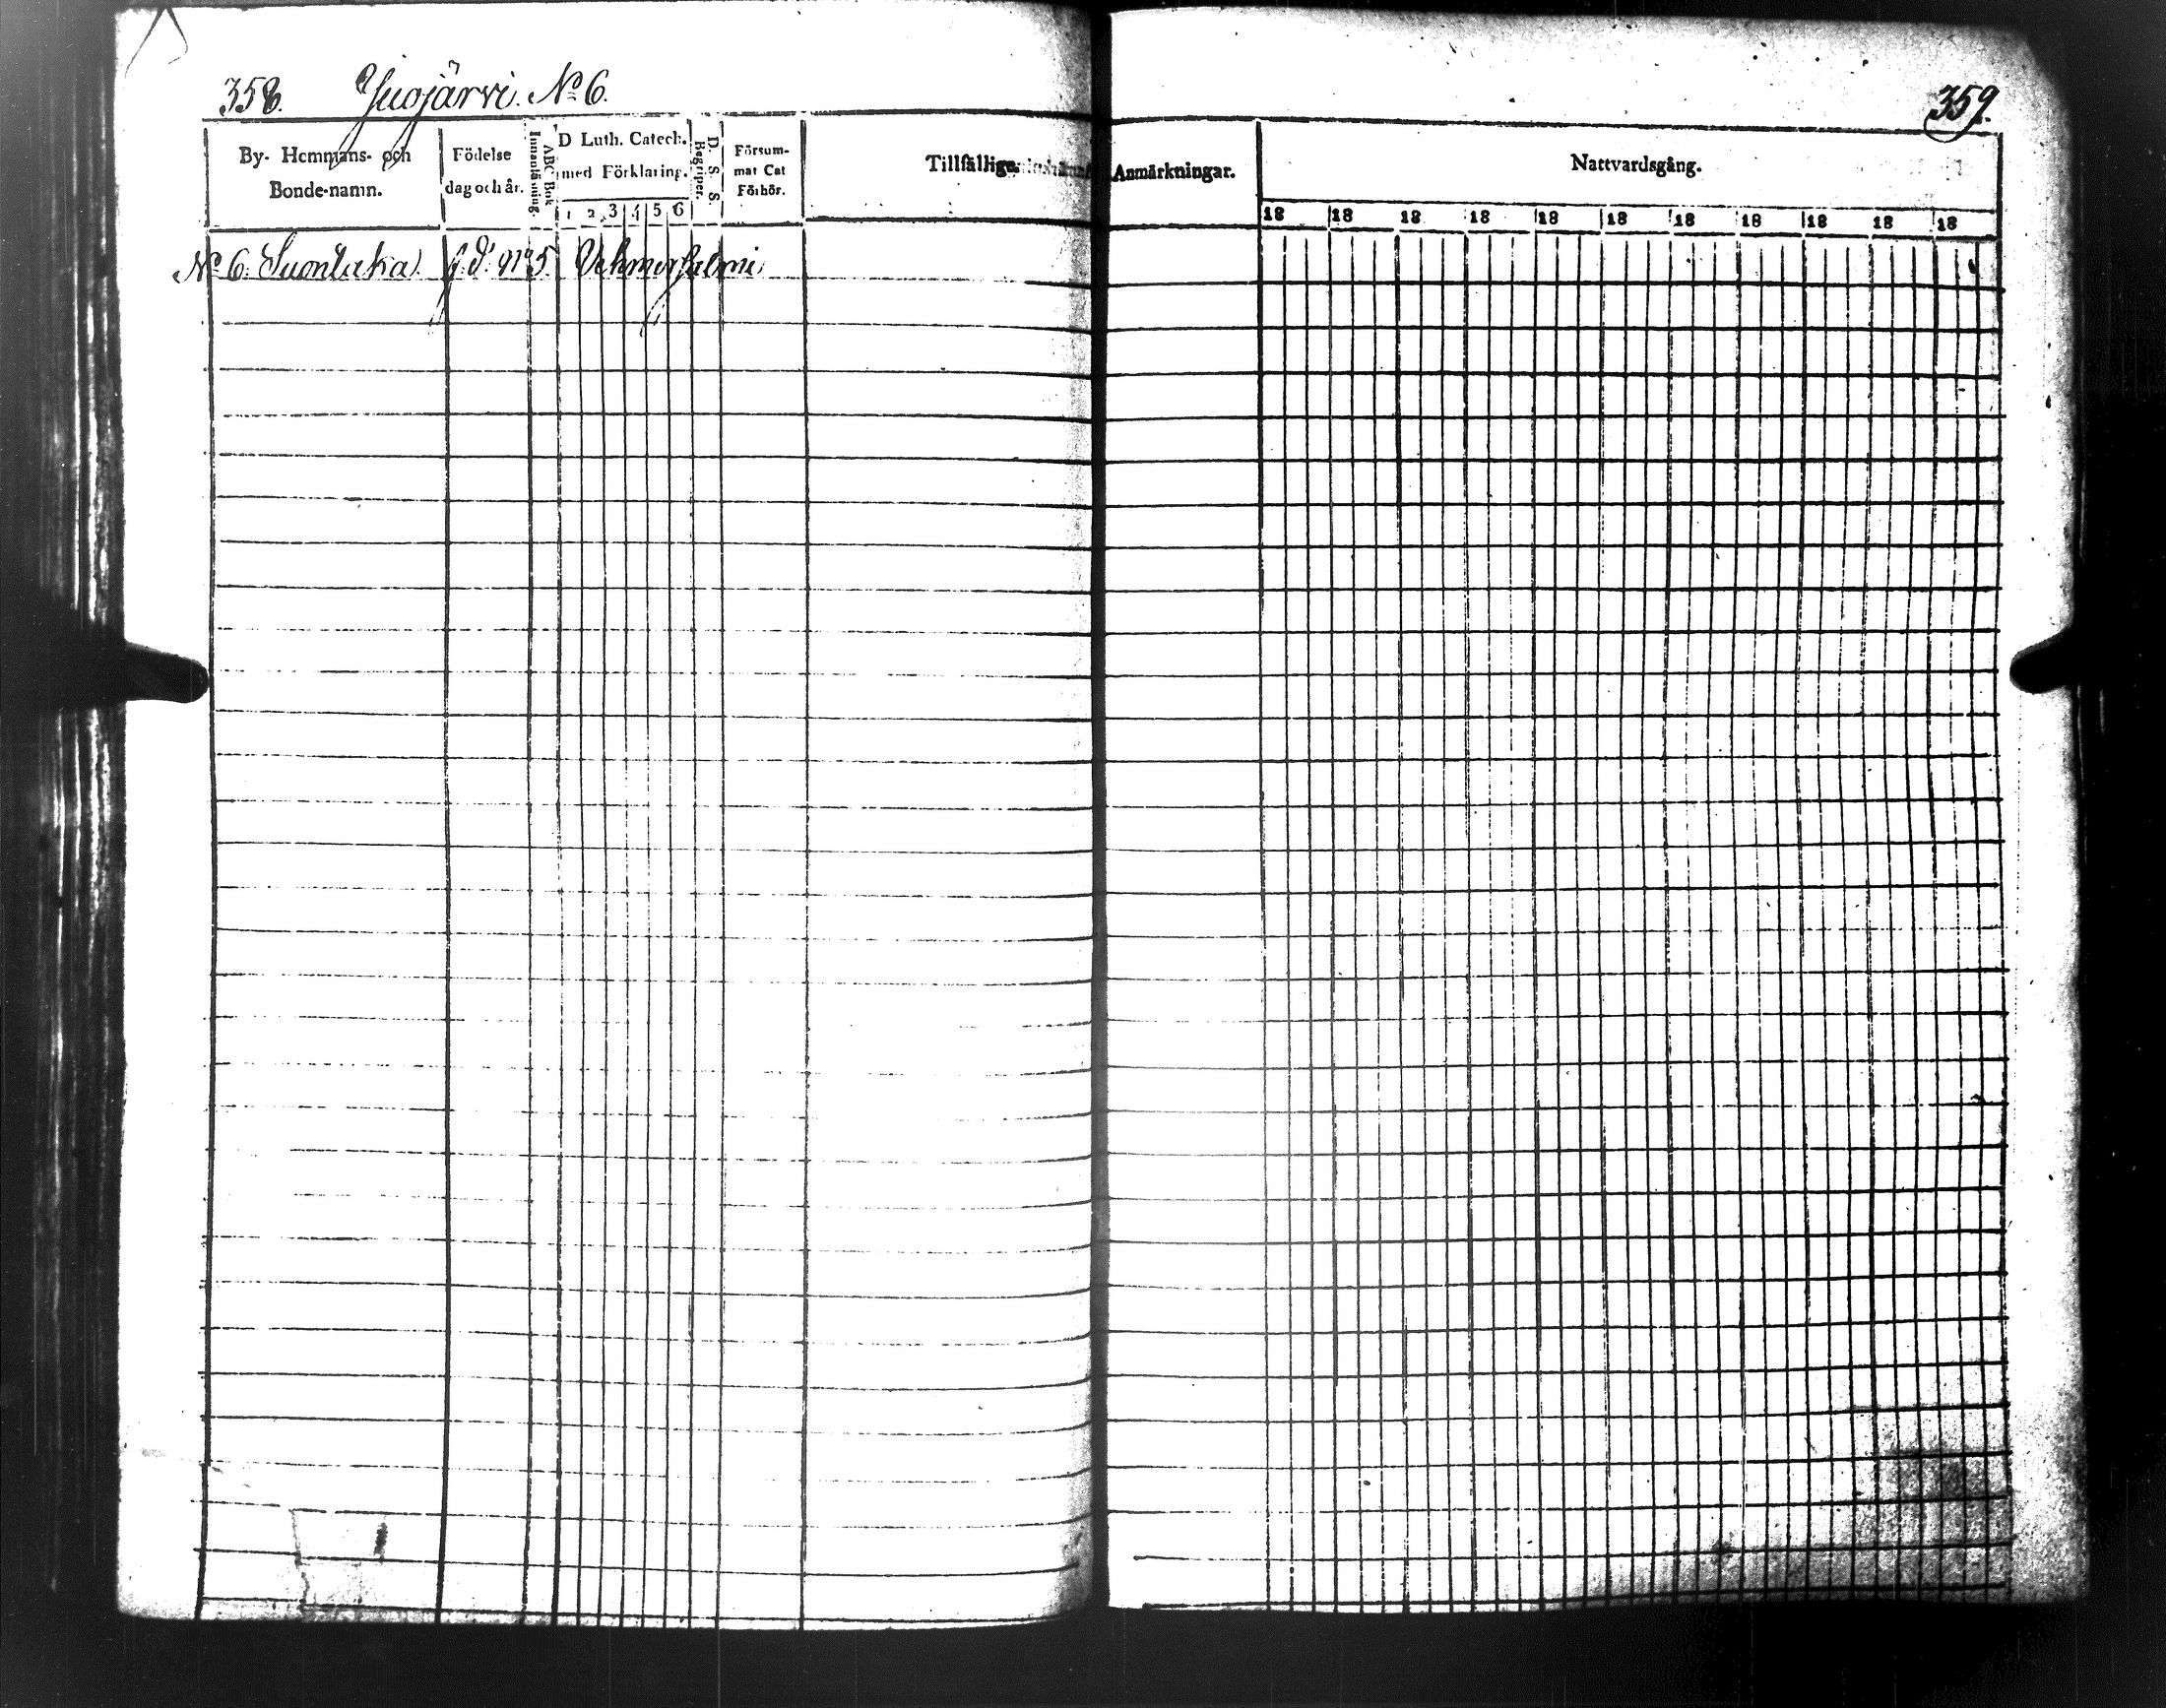 358. Juojärvi. No 6.
359.
By- Hemmans- och
Bonde-namn.
Födelse
dag och år.
Innanläsning.
ABC Bok
D Luth. Catech.
med Förklaring.
1 2 3 4 5 6
D. S. S.
Begriper.
Försum-
mat Cat
Förhör.
Tillfällige Anmärkningar.
Nattvardsgång.
18 18 18 18 18 18 18 18 18 18 18
No 6. Suontaka No 5 Vehmersalmi